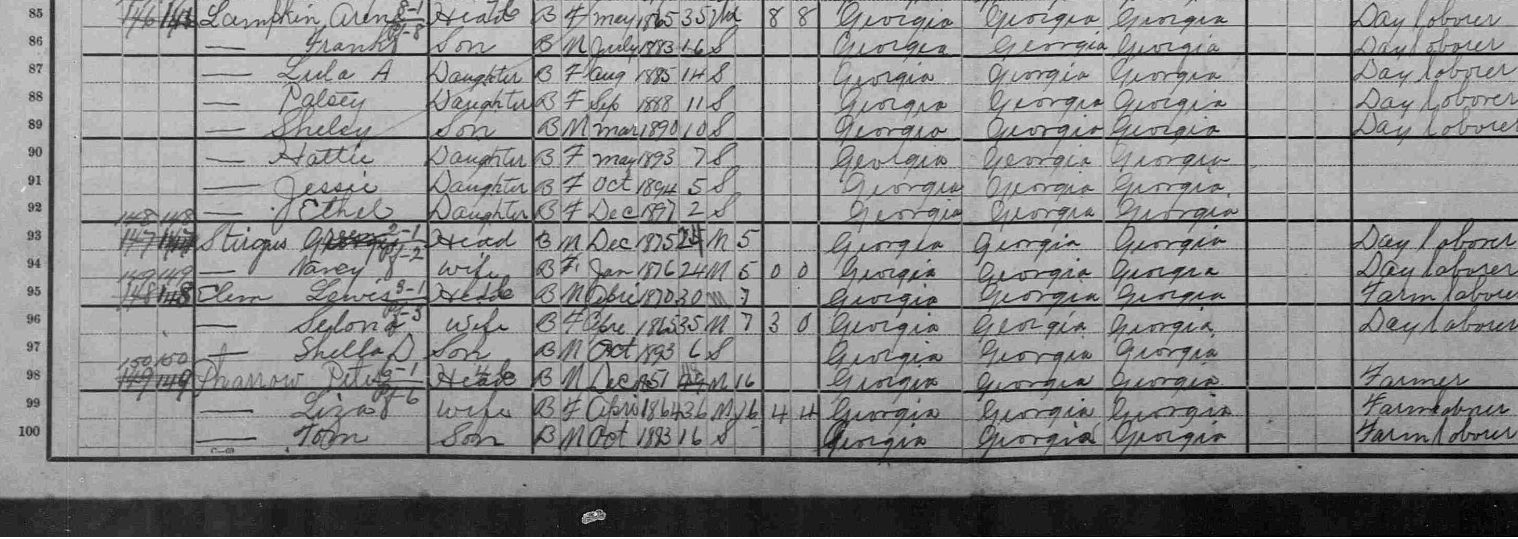 85 Lampkin, Head B F May 1865 35 8 8 Georgia Georgia Georgia Day laborer
86 — Frank Son B M July 1883 16 S Georgia Georgia Georgia Day laborer
87 — Lula A Daughter B F Aug 1885 14 S Georgia Georgia Georgia Day laborer
88 — Patsey Daughter B F Sep 1888 11 S Georgia Georgia Georgia Day loborer
89 — Sheley Son B M mar 1890 10 S Georgia Georgia Georgia Day loborer
90 — Hattie Daughter B F may 1893 7 S Georgia Georgia Georgia
91 — Jessie Daughter B F Oct 1894 5 S Georgia Georgia Georgia
92 — Ethel Daughter B F Dec 1897 2 S Georgia Georgia Georgia
148 148
93 147 147 Head B M Dec 1875 24 M 5 Georgia Georgia Georgia Day laborer
94 — Nancy Wife B F Jan 1876 24 M 5 0 0 Georgia Georgia Georgia Day laborer
149 149
95 148 148 Elem Lewis Head B M Apri 1870 30 M 7 Georgia Georgia Georgia Farm laborer
96 — Wife B F Apri 1865 35 M 7 3 0 Georgia Georgia Georgia Day laborer
97 — Shella D Son B M Oct 1893 6 S Georgia Georgia Georgia
150 150
98 149 149 Head B M Dec 1851 M 16 Georgia Georgia Georgia Farmer
99 — Liza Wife B F Apri 1864 36 M 16 4 4 Georgia Georgia Georgia
100 — Tom Son B M Oct 1883 16 S Georgia Georgia Georgia Farm loborer